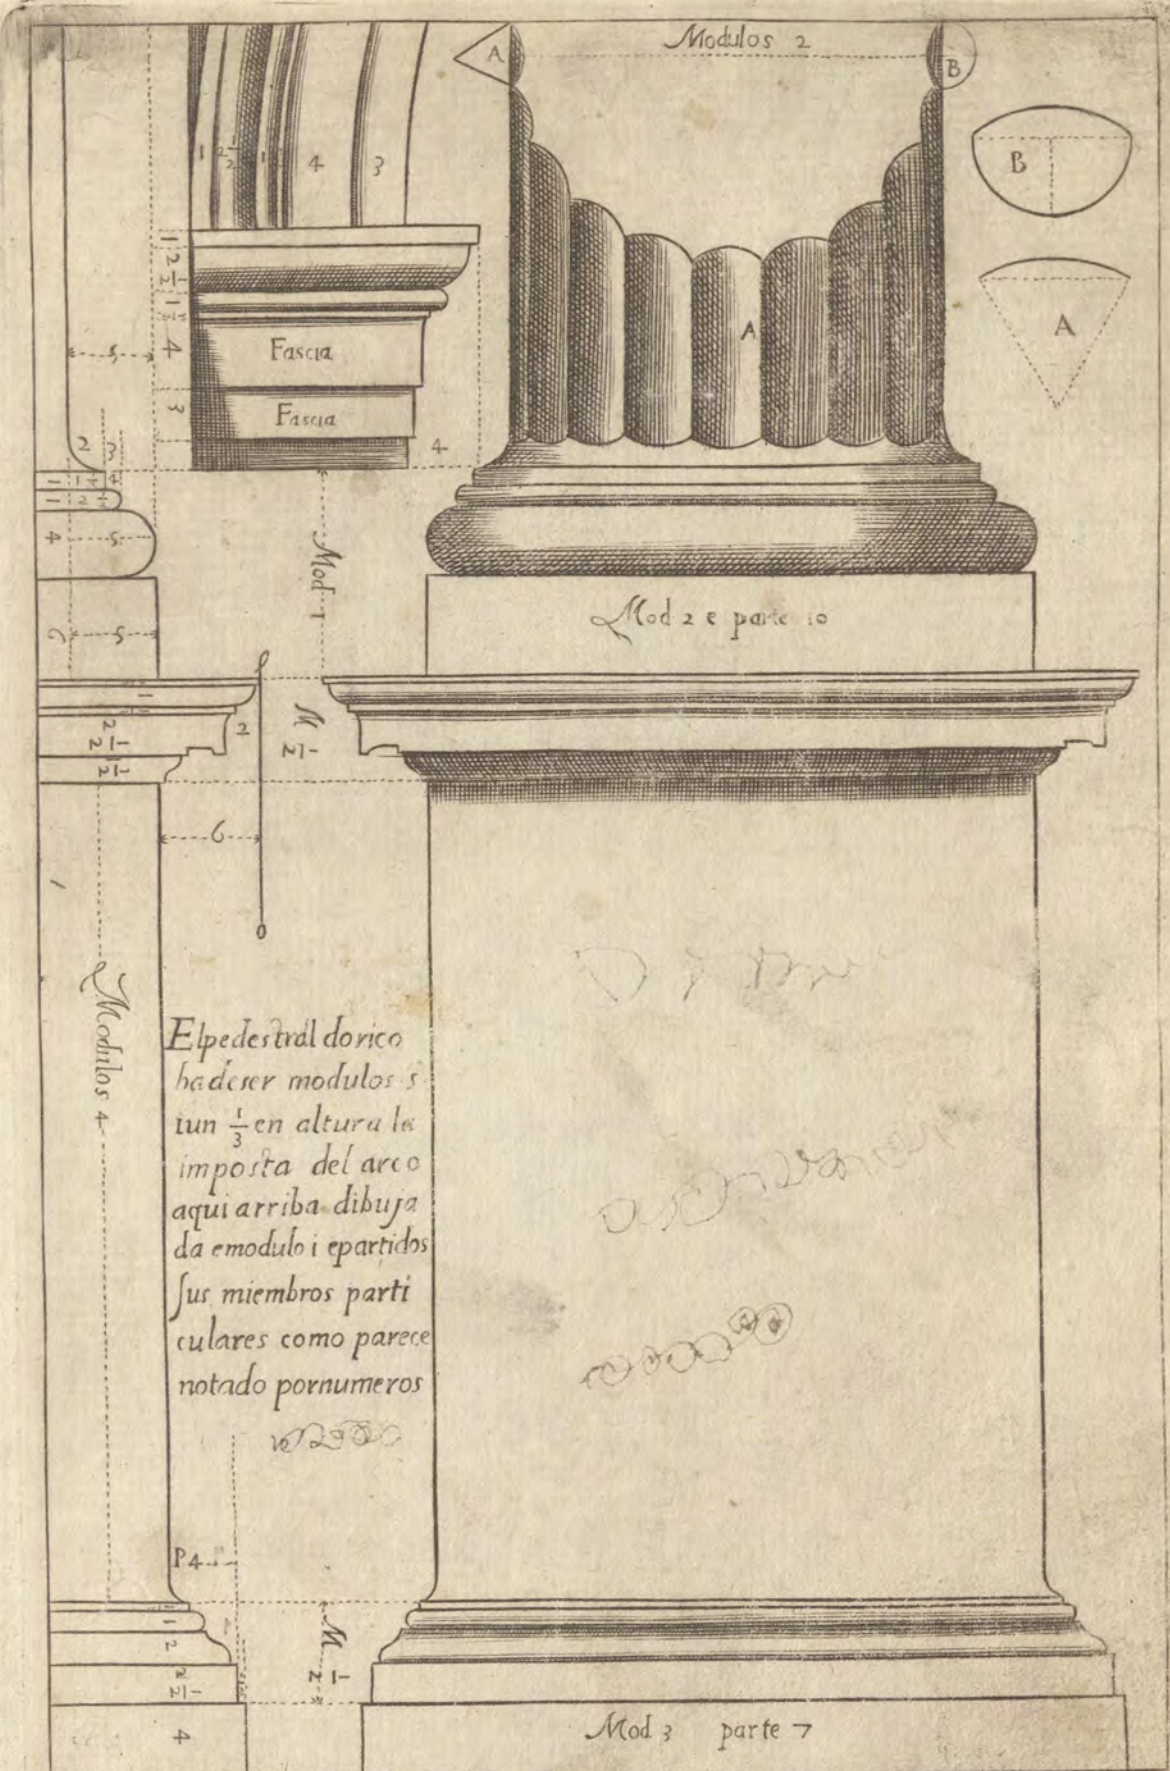 Modulos 2
A
B
1
2 1/2
1
4
3
B
A
A
1
2 1/2
1
4
3
Fascia
Fascia
5
4
2
3
1
1
4
5
6
5
Mod 1
Mod 2 e parte 10
1
2 1/2
2
M 1/2
6
Modulos 4
El pedestral dorico
ha de ser modulos 5
i un 1/3 en altura la
imposta del arco
aqui arriba dibuja
da e modulo i e partidos
sus miembros parti
culares como parece
notado por numeros
P 4
1
2
2 1/2
4
M 1/2
Mod 3 parte 7